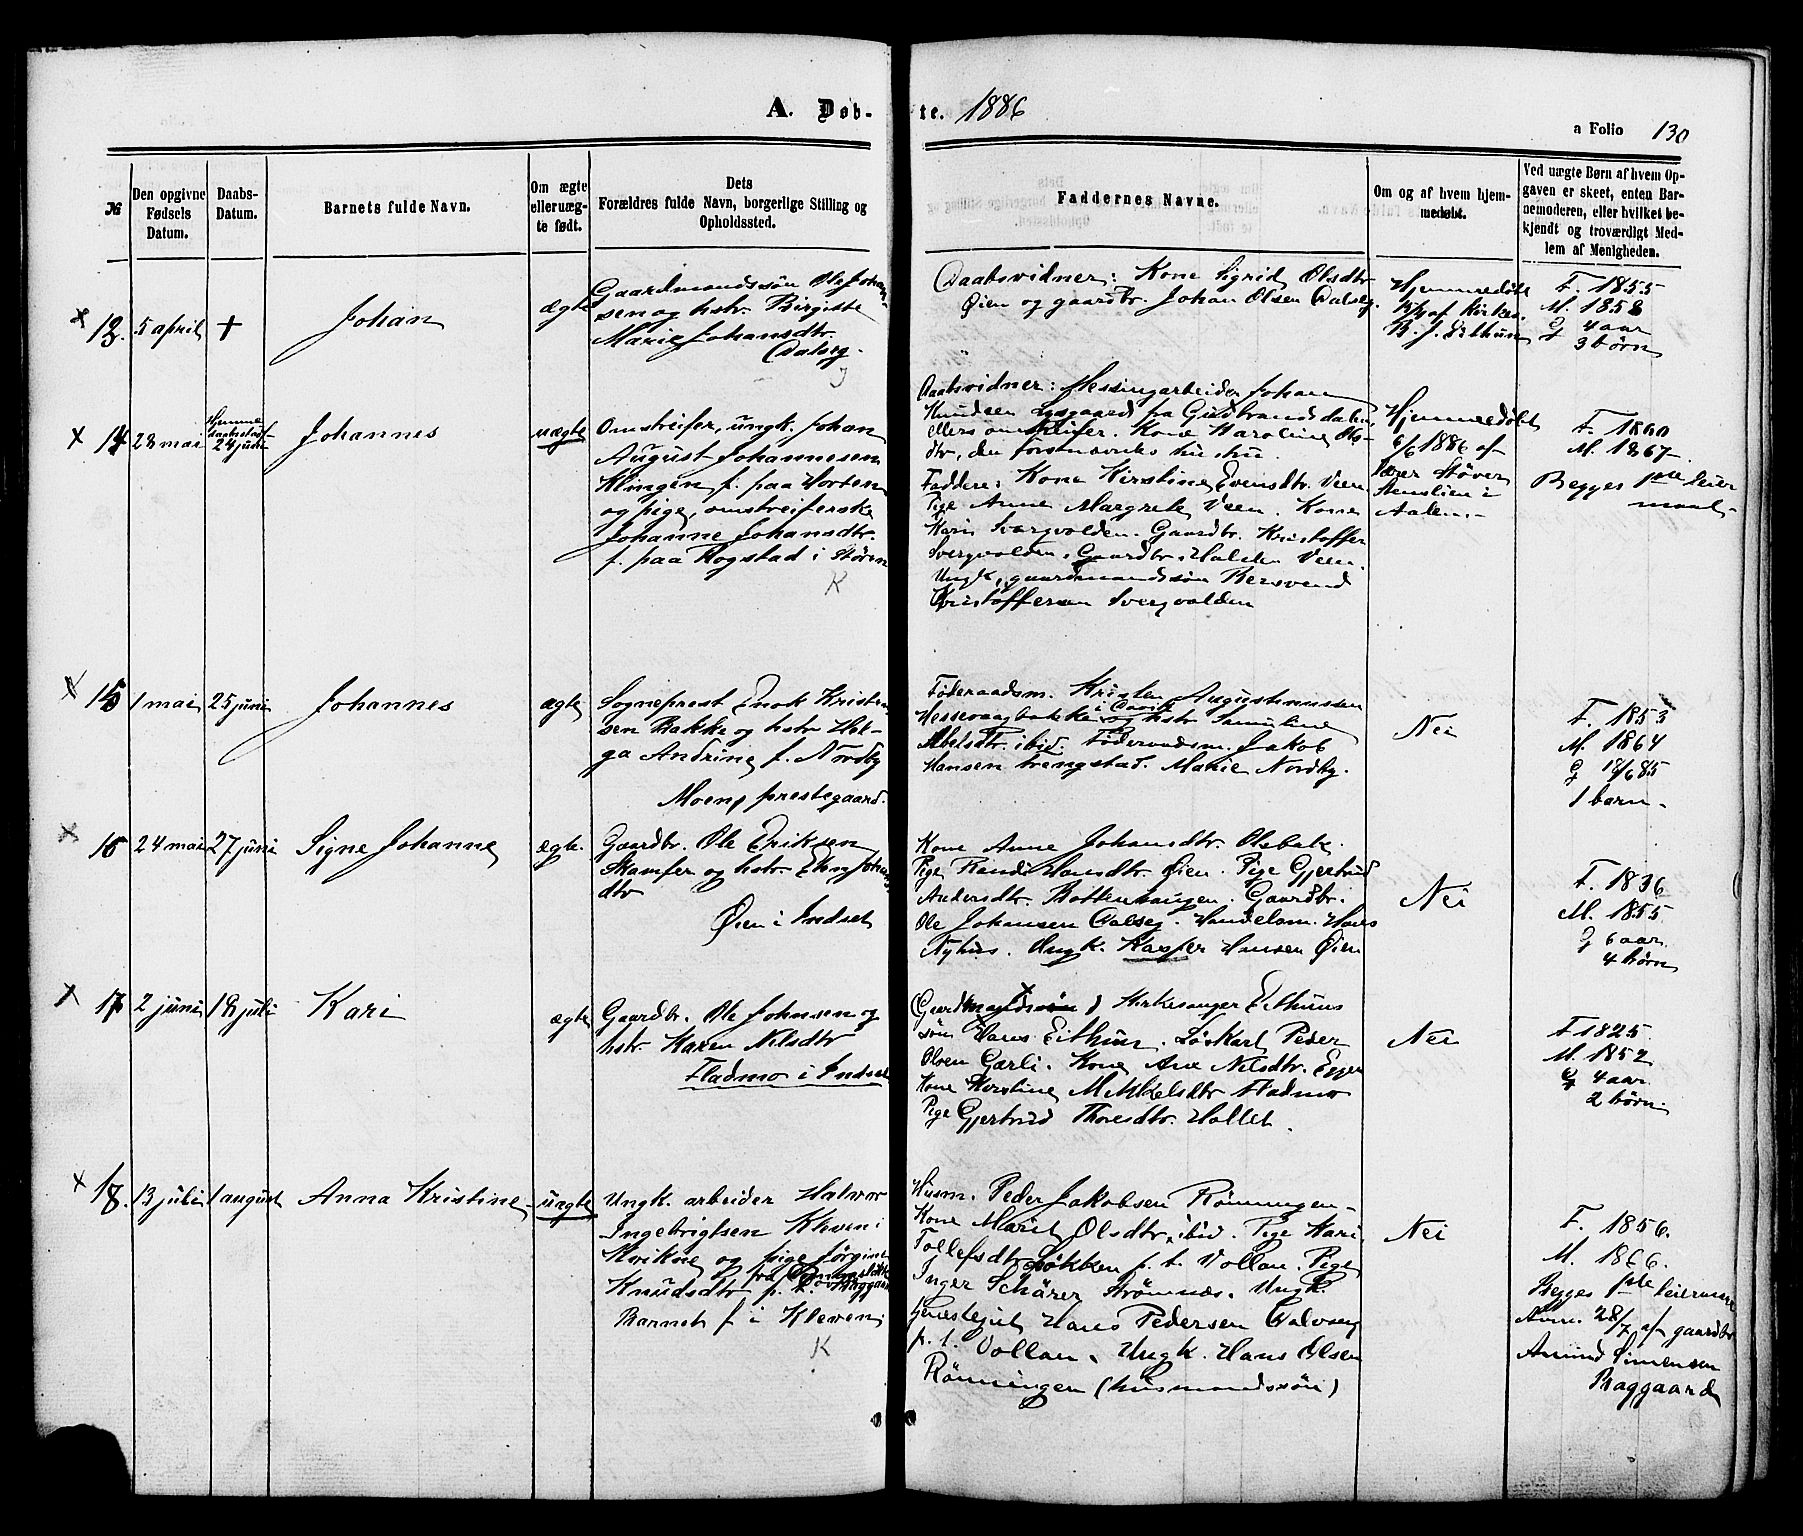 A. Døb-
te. 1886
a Folio 130
№
Den opgivne
Fødsels
Datum.
Daabs-
Datum.
Barnets fulde Navn.
Om ægte
eller uæg-
te født.
Dets
Forældres fulde Navn, borgerlige Stilling og
Opholdssted.
Faddernes Navne.
Om og af hvem hjem-
medøbt.
Ved uægte Børn af hvem Op-
gaven er skeet, enten Bar-
nemoderen, eller hvilket be-
kjendt og troværdigt Med-
lem af Menigheden.
x 13. 5 april + Johan ægte
Gaardmandssøn Ole Johan-
sen og hstr. Birgitte
Marie Johansdtr.
Dalseg.
Daabsvidner: Kone Sigrid Olsdtr
Øien og gaardbr. Johan Olsen Dalseg.
Hjemmedøbt
af Kirkes.
F. 1855
M. 1858
G 4 aar
3 børn
x 14 28 mai
Hjemme-
24 juni
Johannes uægte
Omstreifer, ungk. Johan
August Johannesen
Klingen f. paa Horten
og pige, omstreiferske
Johanne Johansdtr.
f. paa Rogstad i Støren
K
Daabsvidner: Messingarbeider Johan
Knudsen Lysgaard fra Gudbrandsdalen,
ellers omstreifer. Kone Karoline Ols-
dtr, den forsnævntes hustru.
Faddere: Kone Kirstine Evensdtr Veen
Pige Anne Margrete Veen. Kone
Kari Svergvolden. Gaardbr. Kristoffer
Svergvolden. Gaardbr. Halden Veen.
Ungk, gaardmandssøn Bersvend
Kristoffersen Svergvolden
Hjemmedøbt
6/6 1886 af
Lærer Støver
Stenslien i
Aalen.-
F. 1860
M. 1867.
Begges 1ste leier
maal.
x 15 1 mai 25 juni Johannes ægte
Sogneprest Enok Kristen
sen Bakke og hstr Hel-
ga Andrine f. Nordby
Moen, prestegaard.
Føderaadsm. Kristen Augustinussen
Hessevaagbakke i Davik og hstr
Abelsdtr. ibid. Føderaadsm. Jakob
Hansen Trengstad. Marie Nordby.
Nei
F. 1853
M. 1864
G 18/6 85
1 barn.
x 16 24 mai 27 juni Signe Johanne ægte.
Gaardbr. Ole Eriksen
Skamfer og hstr. Elen Johans
dtr
Øien i Indset
Kone Anne Johansdtr. Olsbak.
Pige Randi Hansdtr. Øien. Pige Gjertrud
Andersdtr. Bottenhaugen. Gaardbr.
Ole Johansen Dalseg. Handelsm. Hans
Nyhus. Ungk. Kasper Hansen Øien
Nei
F. 1836
M. 1855
G 6 aar.
4 børn
x 17 2 juni 18 juli Kari ægte
Gaardbr. Ole Johnsen og
hstr. Karen Nilsdtr
Fladmo i Indset
Gaardmandssøn Kirkesanger Eithuns
søn Hans Eithun. Løskarl Peder
Olsen Garli. Kone Ane Nilsdtr. Eggen
Kone Kirstine Mikkelsdtr Fladmo
Pige Gjertrud Thoresdtr. Hallet.
Nei
F 1825
M. 1852
G 4 aar.
2 børn.
x 18. 13 juli 1 august Anna Kristine uægte
Ungk. arbeider Halvor
Ingebrigtsen Kleven i
Kvikne og pige Jørgine
Knudsdtr p. t.
Barnet f. i Kleven
K
Husm. Peder Jakobsen Rønningen.
Kone Marit Olsdtr. ibid. Pige Kari
Tollefsdtr Løkken p. t. Vollan. Pige
Inger Schärer Strømnæs. Ungk.
Hans Pedersen Dalseg
p. t. Vollan. Ungk. Hans Olsen
Rønningen (husmandssøn)
Nei
F. 1856.
M. 1866.
Begges 1ste leiermaal
Anm. 28/7 af gaardbr
Amund Simensen
Baggaard